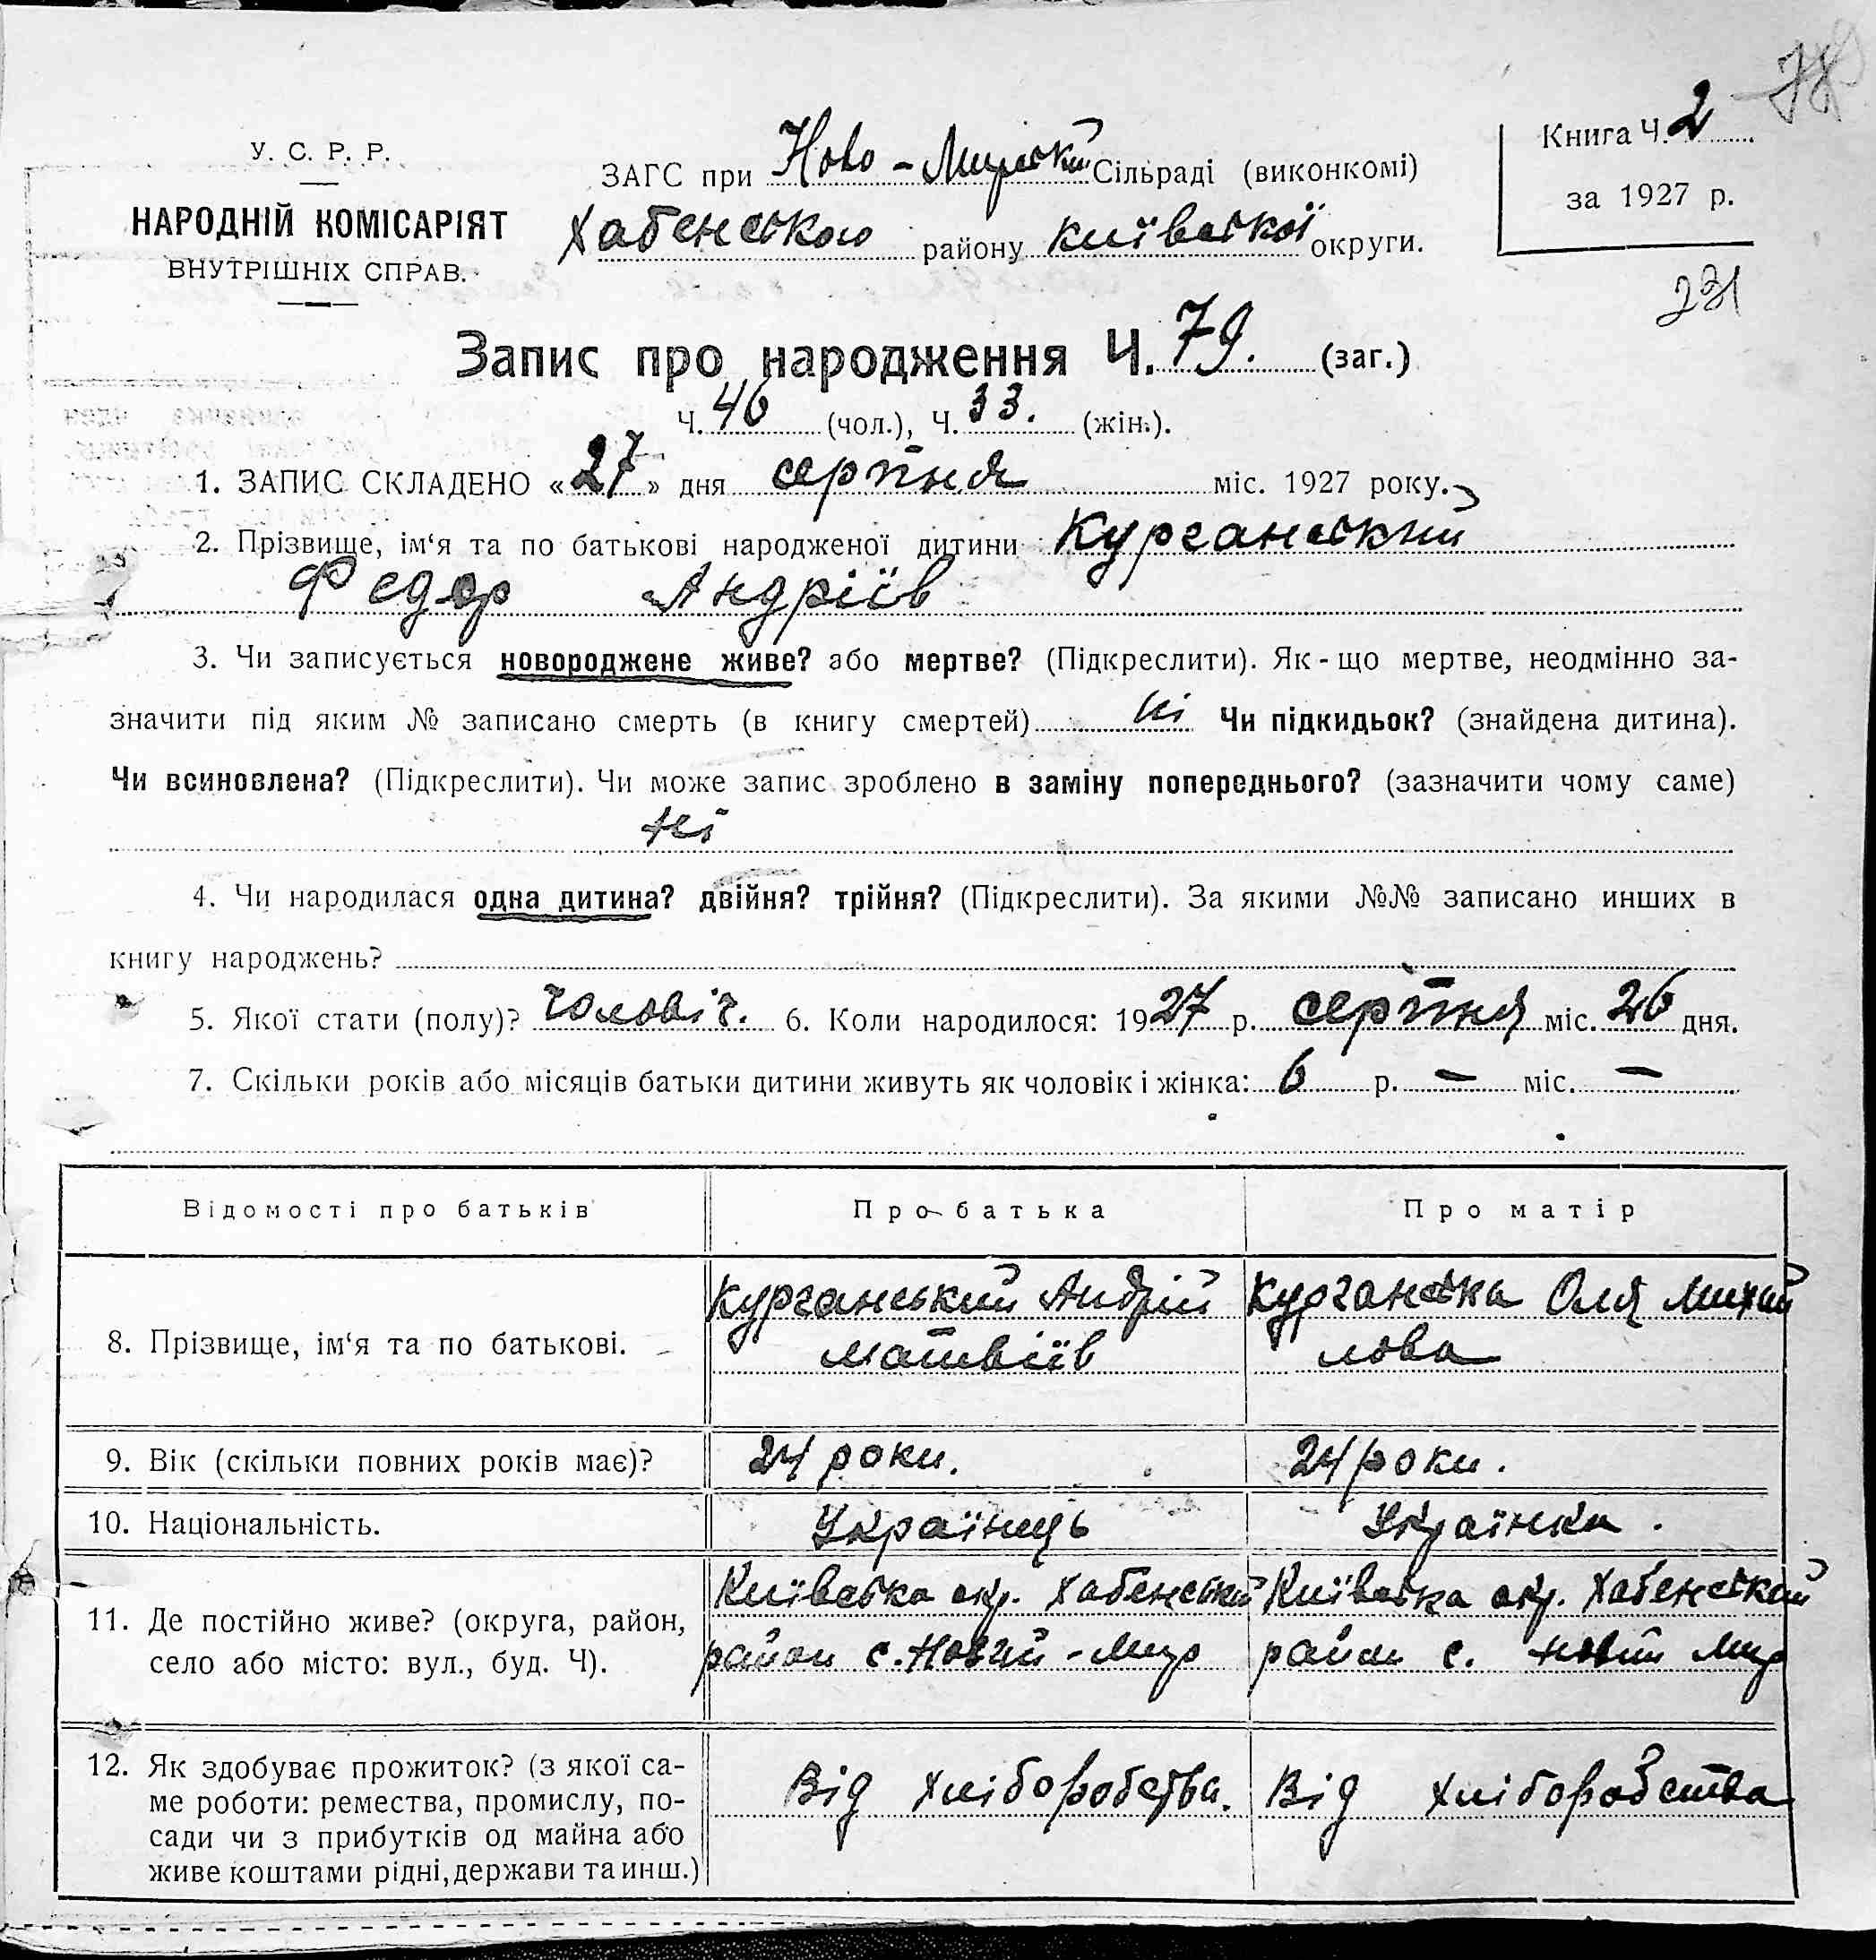 У. С. Р. Р.
НАРОДНІЙ КОМІСАРІЯТ
ВНУТРІШНІХ СПРАВ.
ЗАГС при Ново-Мирській Сільраді (виконкомі)
Хабенського району Київської округи.
Книга Ч. 2
за 1927 р.
231
Запис про народження Ч. 79. (заг.)
Ч. 46 (чол.), Ч. 33. (жін.).
1. ЗАПИС СКЛАДЕНО «27» дня серпня міс. 1927 року.
2. Прізвище, ім‘я та по батькові народженої дитини Курганський
Федор Андріїв
3. Чи записується новороджене живе? або мертве? (Підкреслити). Як-що мертве, неодмінно за-
значити під яким № записано смерть (в книгу смертей) ні Чи підкидьок? (знайдена дитина).
Чи всиновлена? (Підкреслити). Чи може запис зроблено в заміну попереднього? (зазначити чому саме)
ні
4. Чи народилася одна дитина? двійня? трійня? (Підкреслити). За якими №№ записано инших в
книгу народжень?
5. Якої стати (полу)? чоловіч. 6. Коли народилося: 1927 р. серпня міс. 26 дня.
7. Скільки років або місяців батьки дитини живуть як чоловік і жінка: 6 р. – міс. –
Відомості про батьків Про батька Про матір
8. Прізвище, ім‘я та по батькові.
Курганський Андрій
Матвіїв
Курганська Оля Михай
лова
9. Вік (скільки повних років має)? 24 роки. 24 роки.
10. Національність. Українць Українка.
11. Де постійно живе? (округа, район,
село або місто: вул., буд. Ч).
Київська окр. Хабенський
район с. Новий-Мир
Київська окр. Хабенський
район с. Новий Мир
12. Як здобуває прожиток? (з якої са-
ме роботи: ремества, промислу, по-
сади чи з прибутків од майна або
живе коштами рідні, держави та инш.)
Від хліборобства.
Від хліборобства